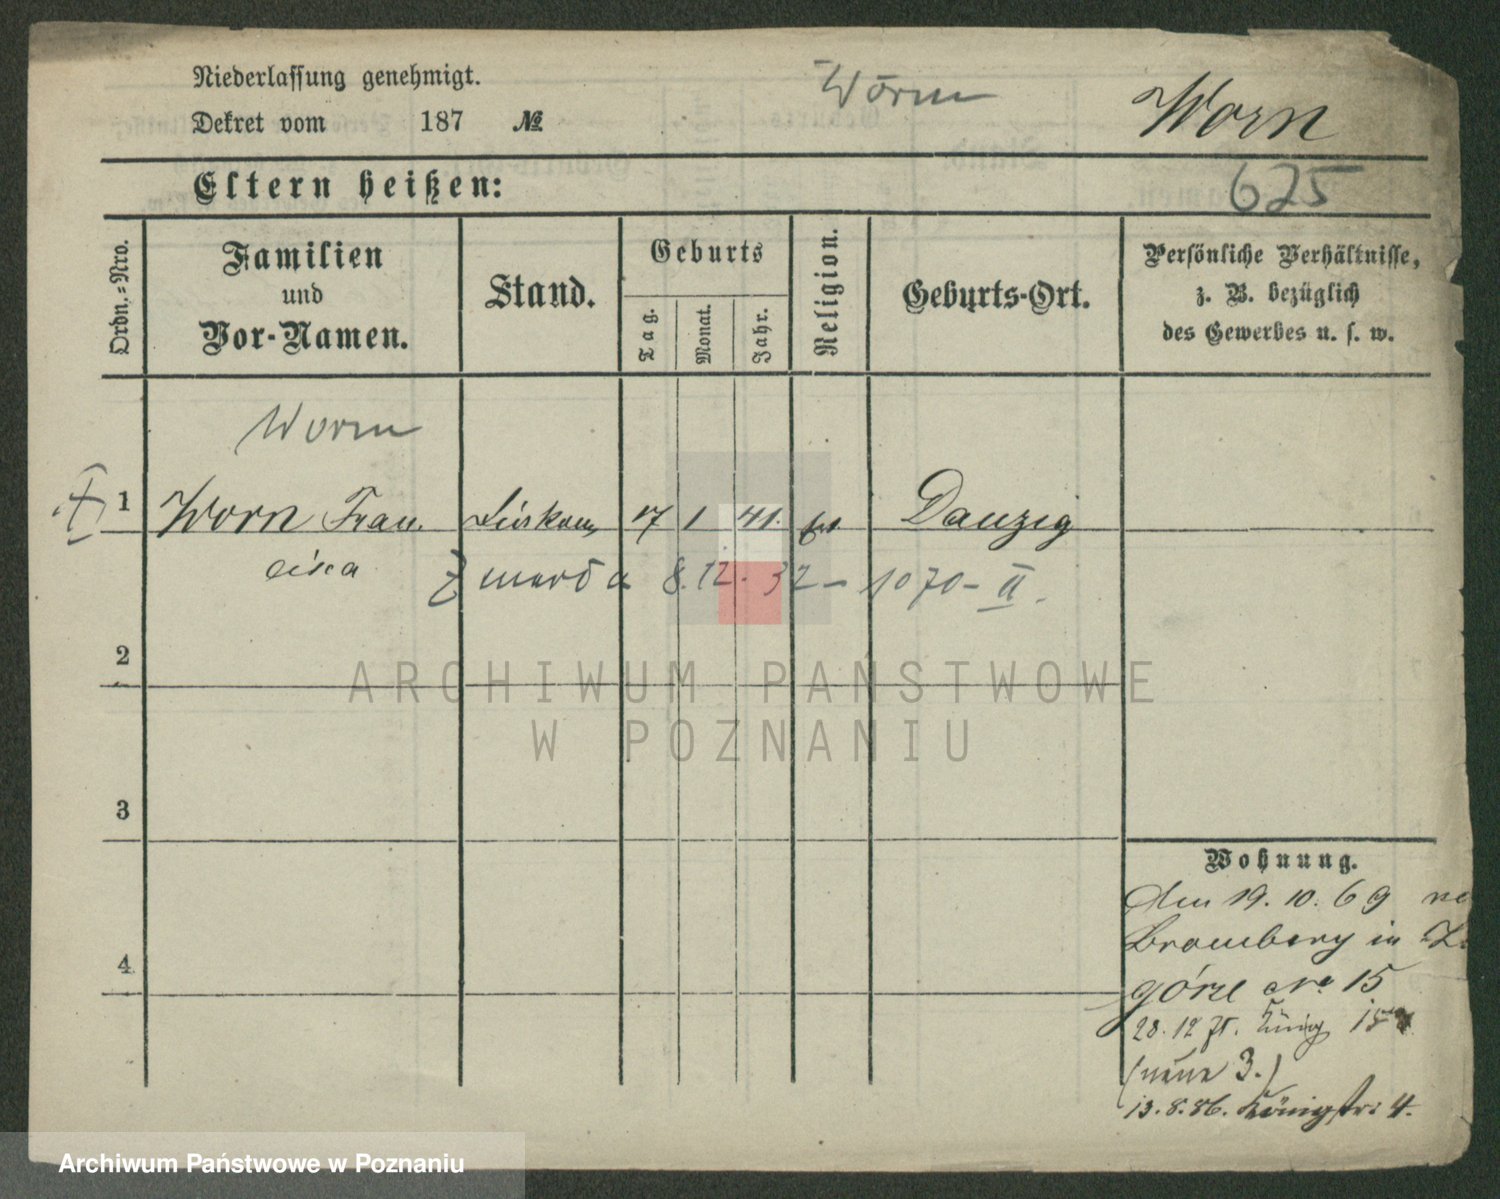 Niederlassung genehmigt.
Dekret vom 187 №
Worm
Worn
625
Eltern heißen:
Ordn.-Nro.
Familien
und
Vor-Namen.
Stand.
Geburts
Tag.
Monat.
Jahr.
Religion.
Geburts-Ort.
Persönliche Verhältnisse,
z. B. bezüglich
des Gewerbes u. s. w.
Worm
1 Worn Fran 17 1 41. Danzig
cisca
8.12.32 - 1070 - II.
2
3
4
Wohnung.
den 19. 10. 69
Bromberg in
górze No 15
28. 12 71.
(neue 3.)
13.8.86. Königstr: 4.
ARCHIWUM PAŃSTWOWE
W POZNANIU
Archiwum Państwowe w Poznaniu